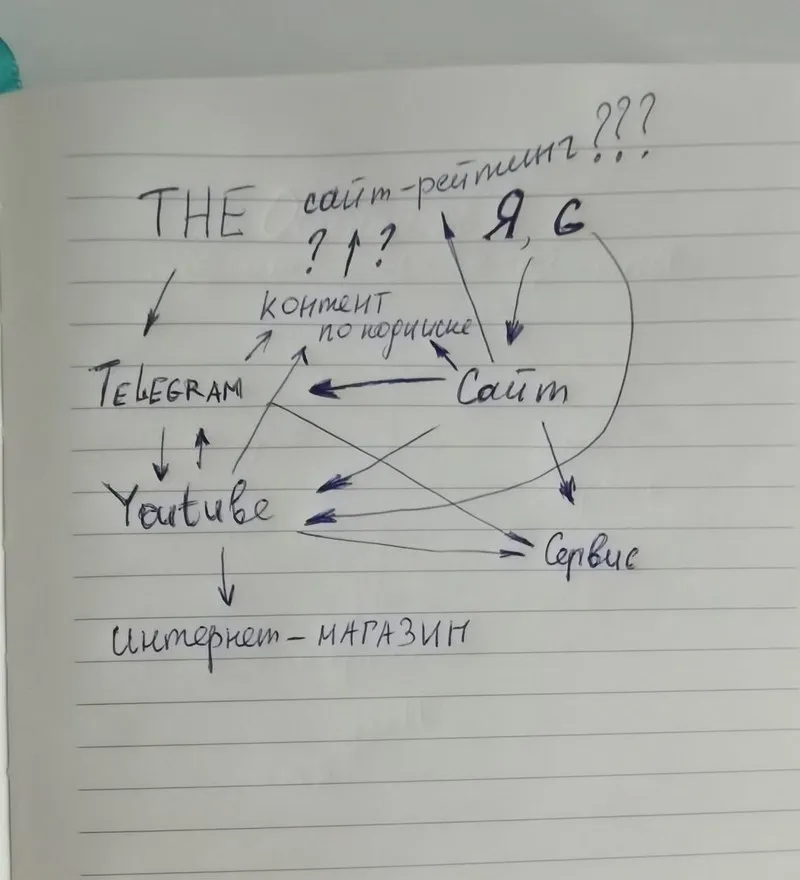 сайт-рейтинг???
THE
Я, G
? ?
контент
по подписке
TELEGRAM
Сайт
Youtube
Сервис
интернет - МАГАЗИН